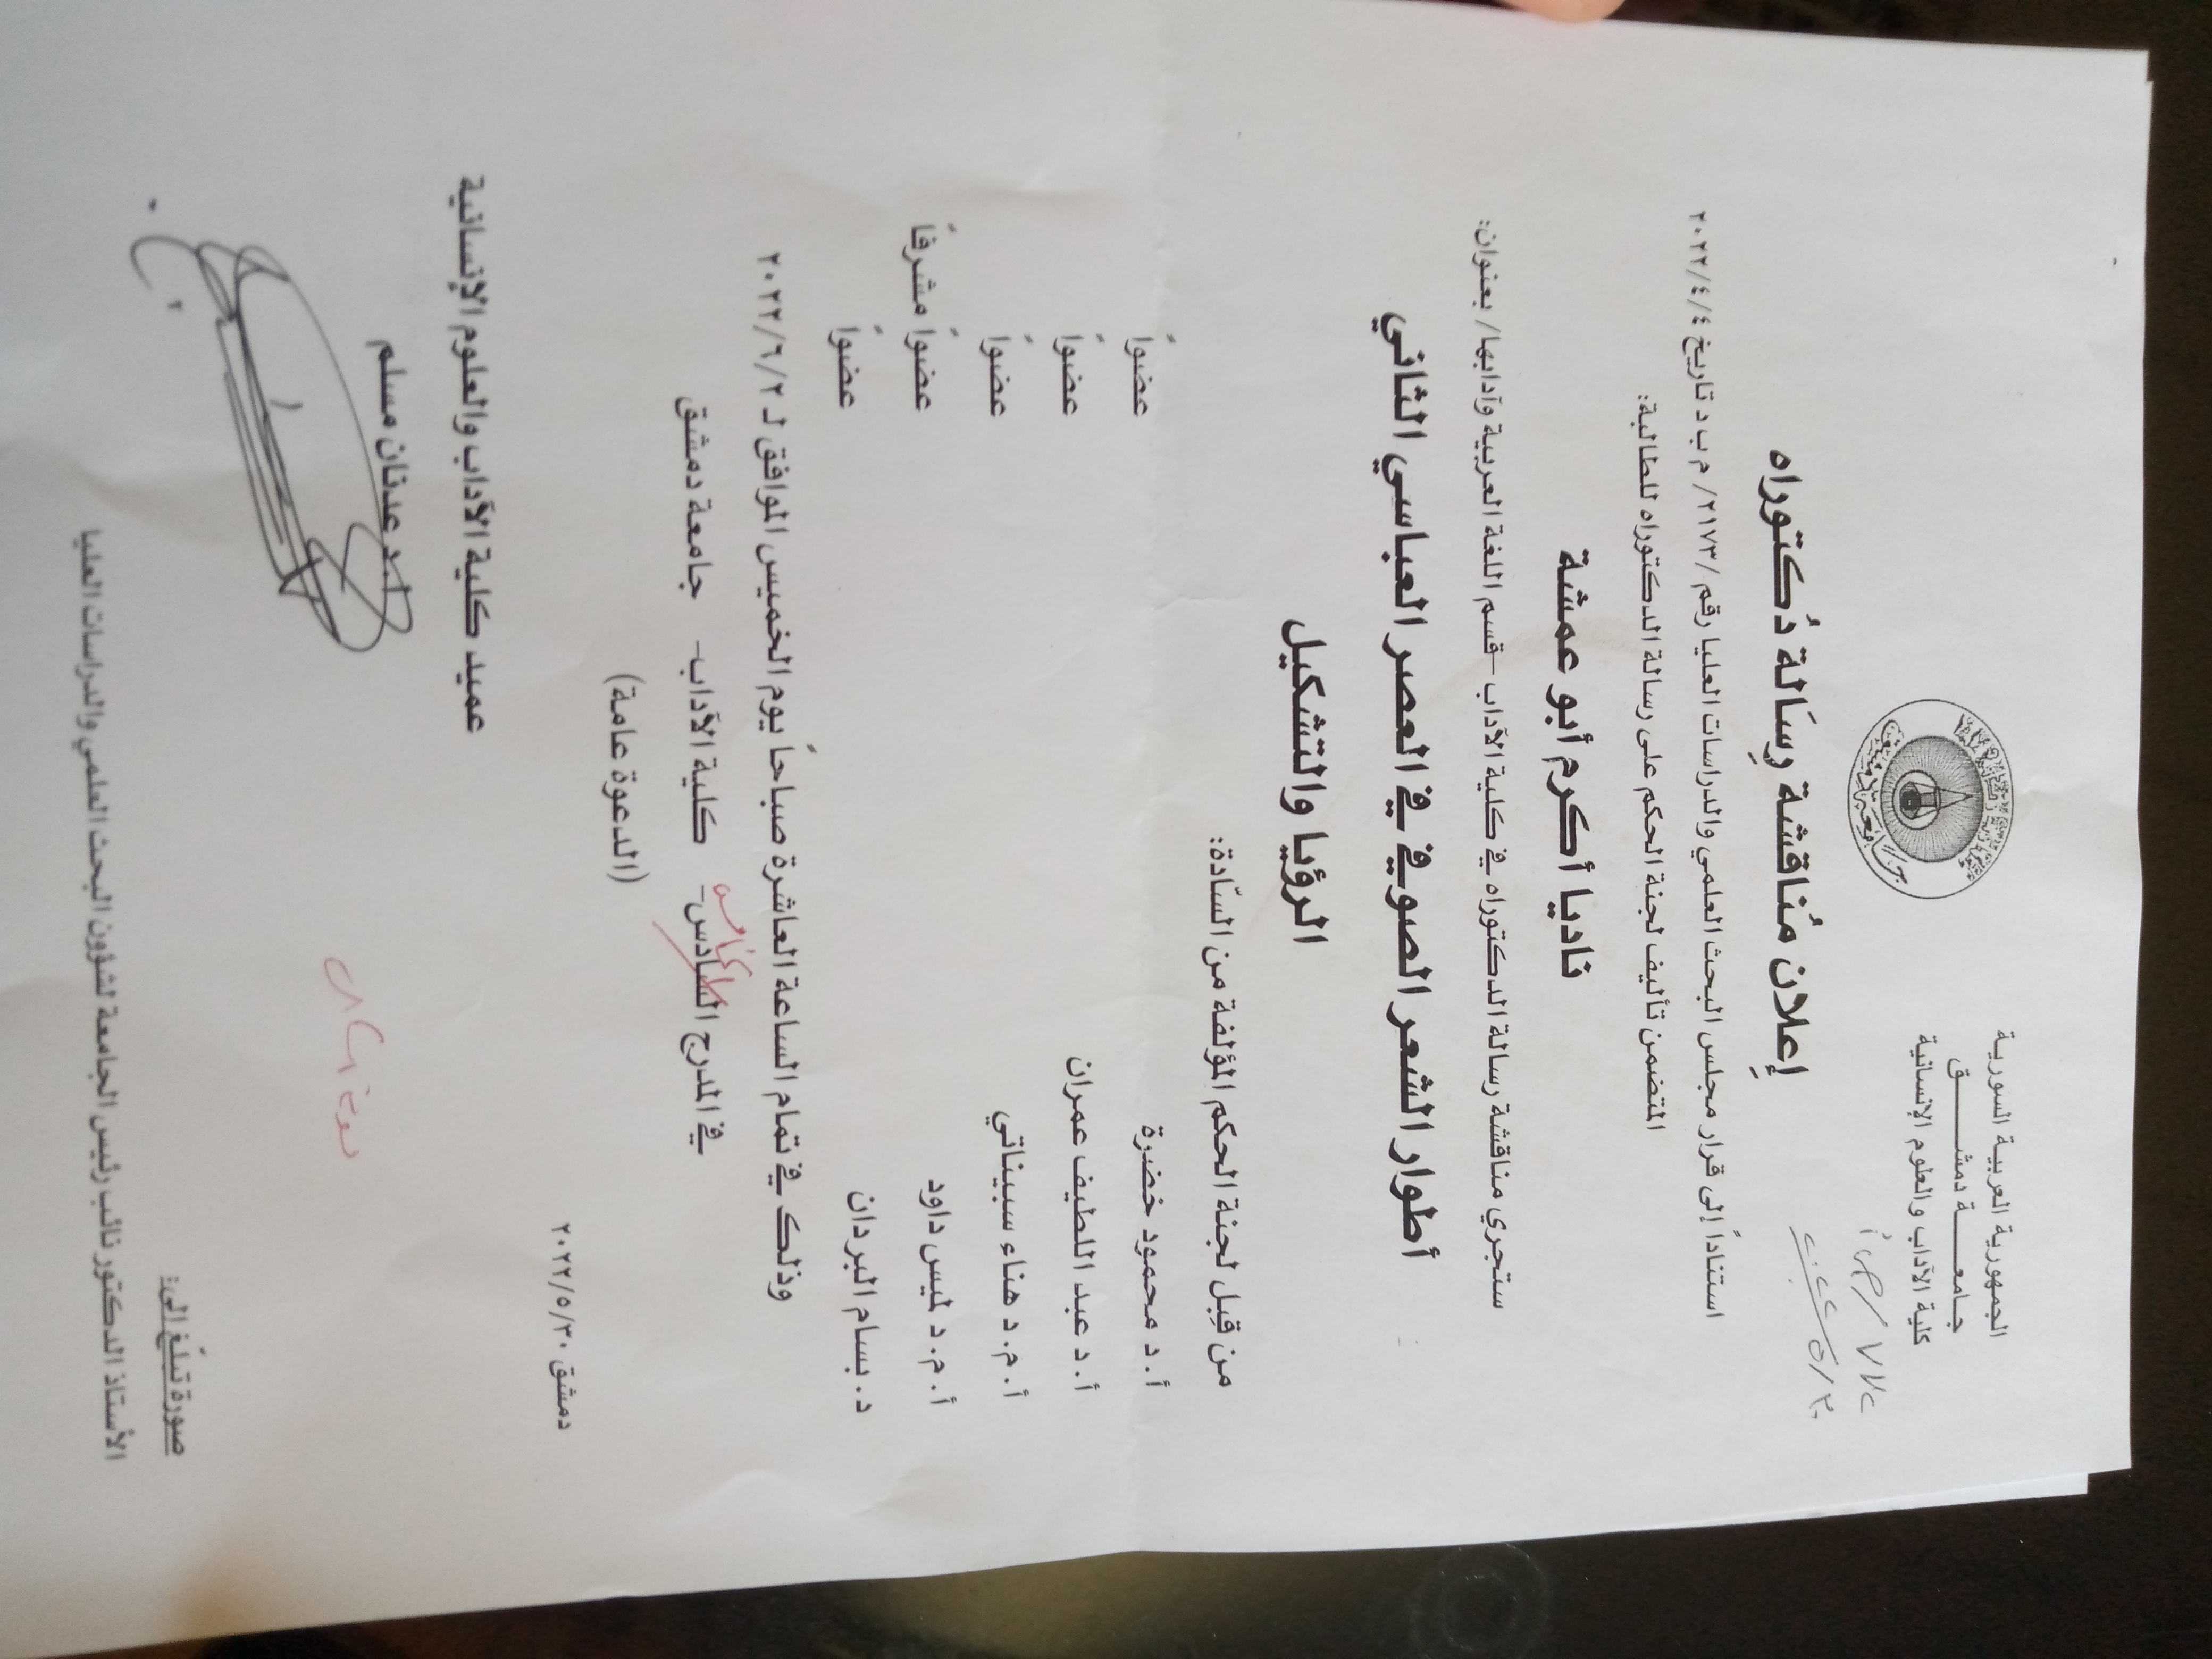 الجمهورية العربية السورية
جـامعـــــة دمشـــــــق
كلية الآداب والعلوم الإنسانية
إِعلان مُناقشة رِسَالة دُكتوراه
استناداً إلى قرار مجلس البحث العلمي والدراسات العليا رقم /٢١٧٣/ م ب د تاريخ ٢٠٢٢/٤/٤
المتضمن تأليف لجنة الحكم على رسالة الدكتوراه للطالبة:
ناديا أكرم أبو عمشة
ستجري مناقشة رسالة الدكتوراه في كلية الآداب -قسم اللغة العربية وآدابها/ بعنوان:
أطوار الشعر الصوفي في العصر العباسي الثاني
الرؤيا والتشكيل
من قبل لجنة الحكم المؤلفة من السّادة:
أ. د محمود خضرة عضواً
أ. د عبد اللطيف عمران عضواً
أ. م. د هناء سبيناتي عضواً
أ. م. د لميس داود عضواً مشرفاً
د. بسام البردان عضواً
وذلك في تمام الساعة العاشرة صباحاً يوم الخميس الموافق لـ ٢٠٢٢/٦/٢
في المدرج السادس- كلية الآداب- جامعة دمشق
الخامس
(الدعوة عامة)
دمشق ٢٠٢٢/٥/٣٠
عميد كلية الآداب والعلوم الإنسانية
أ.د عدنان مسلم
صورة تبلّغ إلى:
الأستاذ الدكتور نائب رئيس الجامعة لشؤون البحث العلمي والدراسات العليا